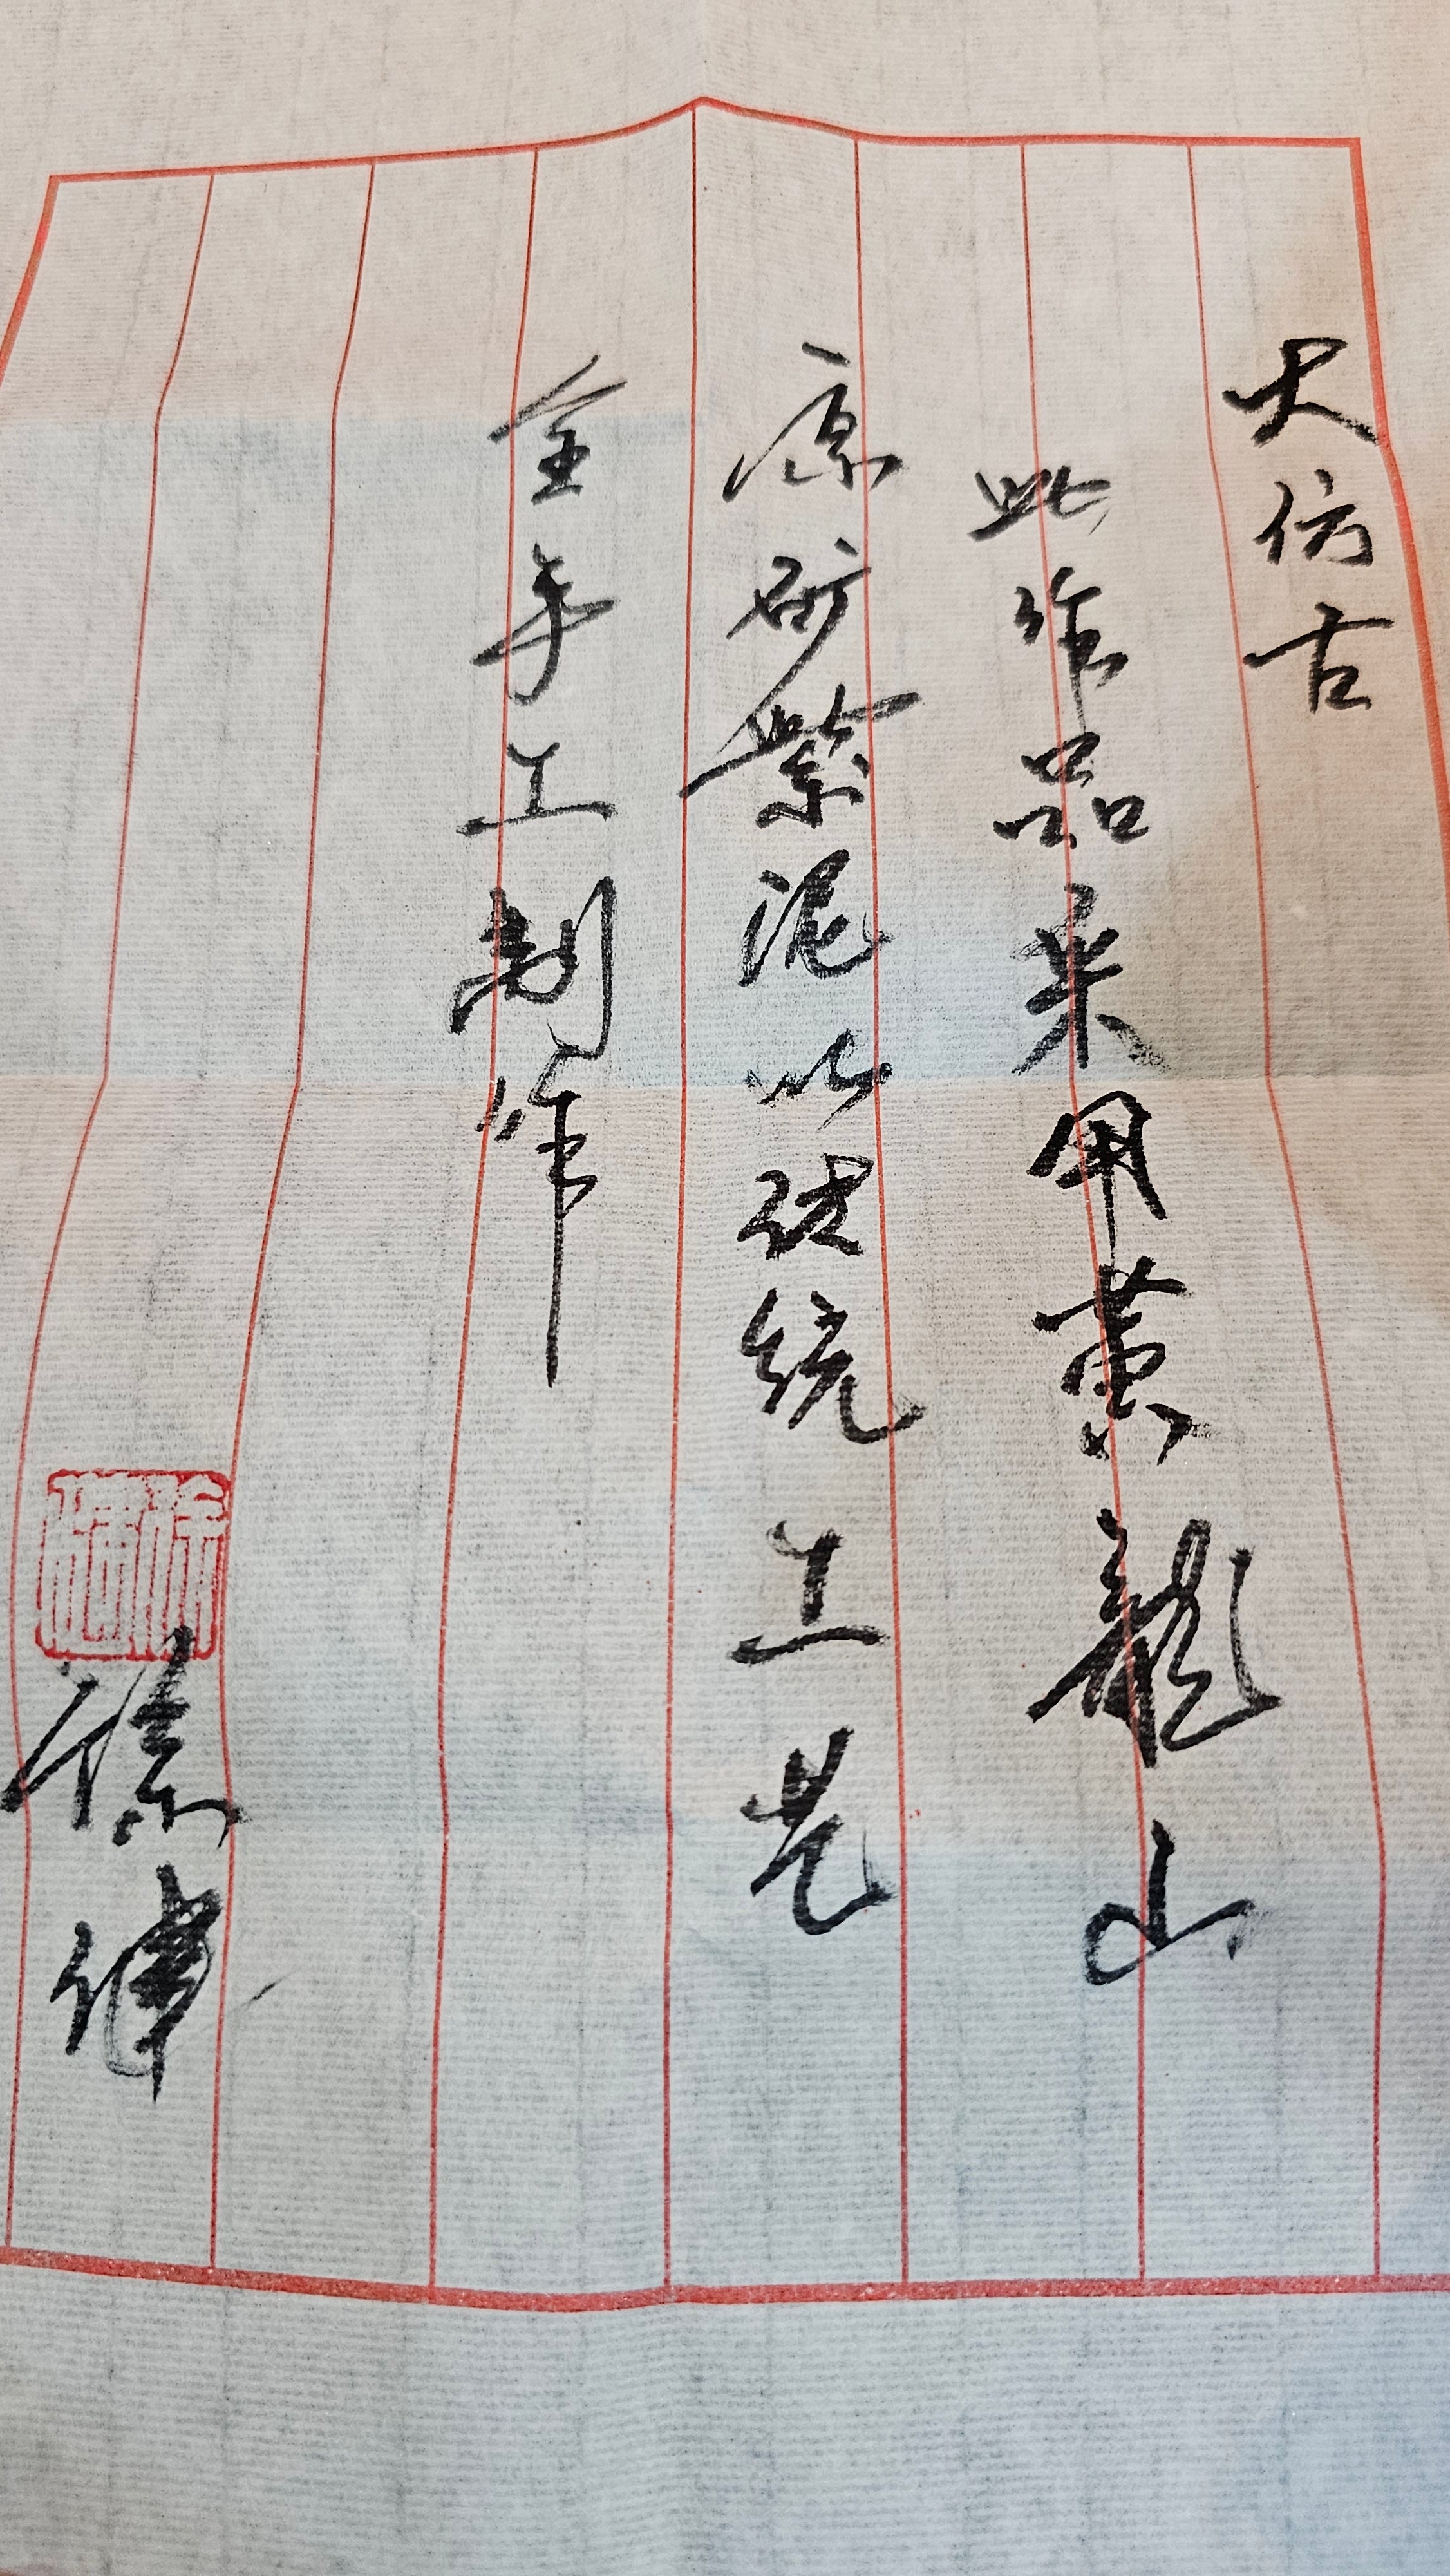 大仿古
此作品采用黄龍山
原矿紫泥以传统工艺
全手工制作
徐偉